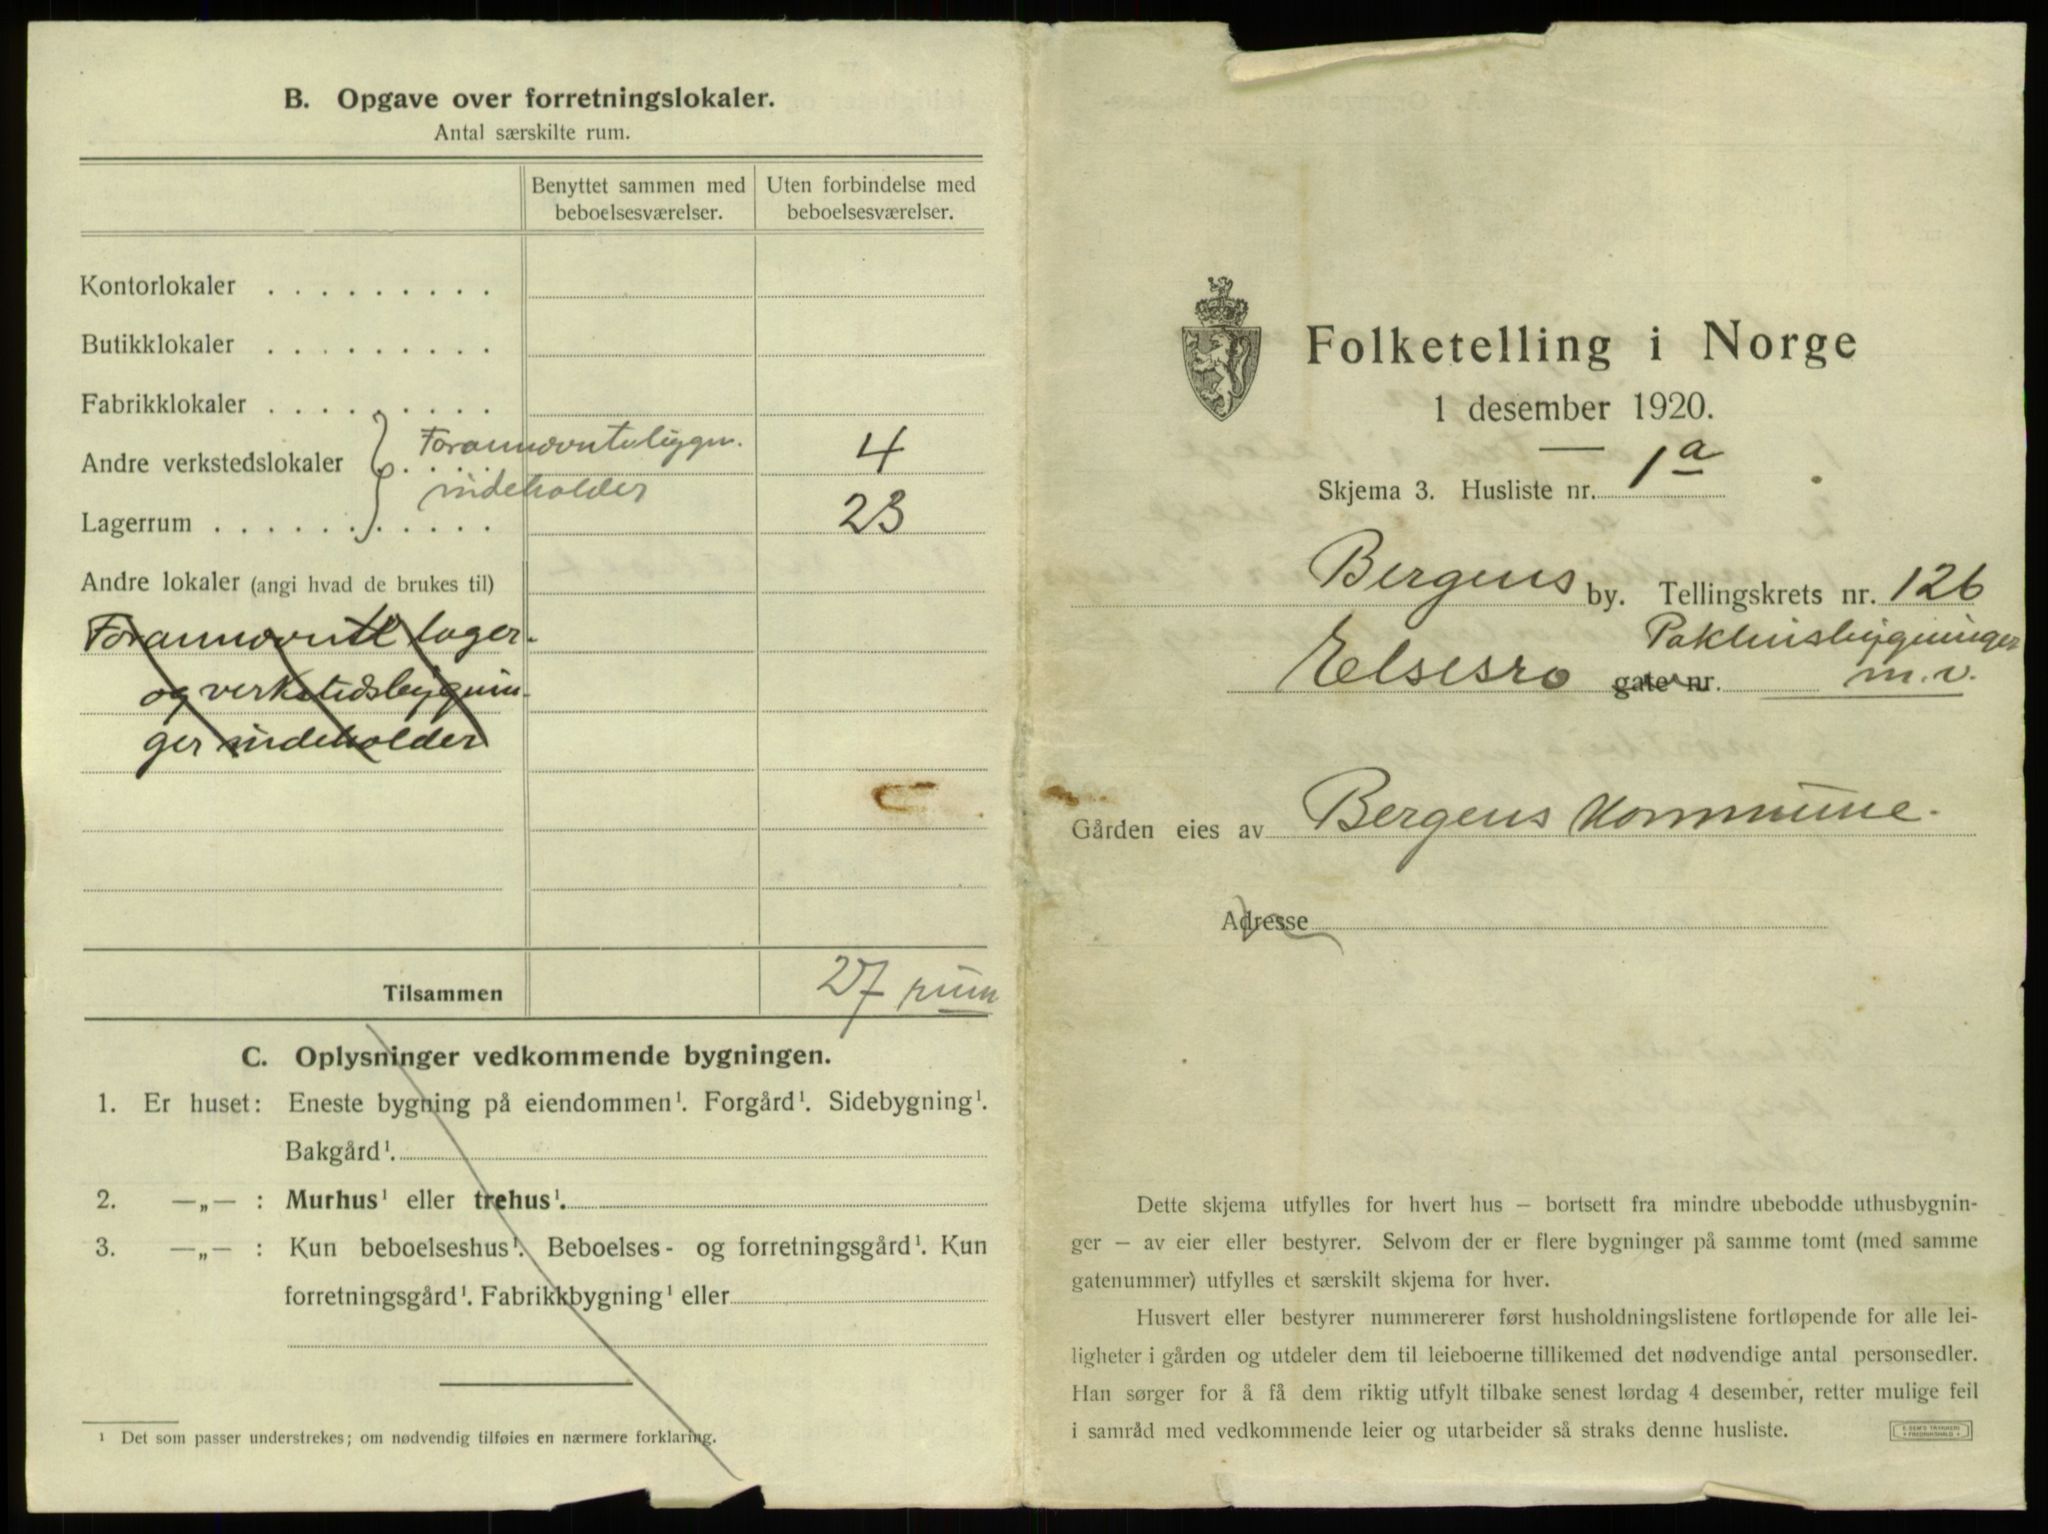 B. Opgave over forretningslokaler.
Antal særskilte rum.
Benyttet sammen med beboelsesværelser.
Uten forbindelse med beboelsesværelser.
Kontorlokaler . . . . . . . . .
Butikklokaler . . . . . . . . .
Fabrikklokaler . . . . . . . . .
Andre verkstedslokaler . . . . 4
Lagerrum . . . . . . . . . . 23
indeholder
Andre lokaler (angi hvad de brukes til)
Forannævnte lager-
og verkstedsbygnin-
ger indeholder
Tilsammen 27 rum
C. Oplysninger vedkommende bygningen.
1. Er huset: Eneste bygning på eiendommen¹. Forgård¹. Sidebygning¹.
Bakgård¹.
2. —„— : Murhus¹ eller trehus¹.
3. —„— : Kun beboelseshus¹. Beboelses- og forretningsgård¹. Kun
forretningsgård¹. Fabrikkbygning¹ eller
¹ Det som passer understrekes; om nødvendig tilføies en nærmere forklaring.
Folketelling i Norge
1 desember 1920.
Skjema 3. Husliste nr. 1a
Bergens by. Tellingskrets nr. 126
Elsesro gate nr. Pakhusbygninger
m.v.
Gården eies av Bergens Kommune.
Adresse
Dette skjema utfylles for hvert hus – bortsett fra mindre ubebodde uthusbygnin-
ger – av eier eller bestyrer. Selvom der er flere bygninger på samme tomt (med samme
gatenummer) utfylles et særskilt skjema for hver.
Husvert eller bestyrer nummererer først husholdningslistene fortløpende for alle lei-
ligheter i gården og utdeler dem til leieboerne tillikemed det nødvendige antal personsedler.
Han sørger for å få dem riktig utfylt tilbake senest lørdag 4 desember, retter mulige feil
i samråd med vedkommende leier og utarbeider så straks denne husliste.